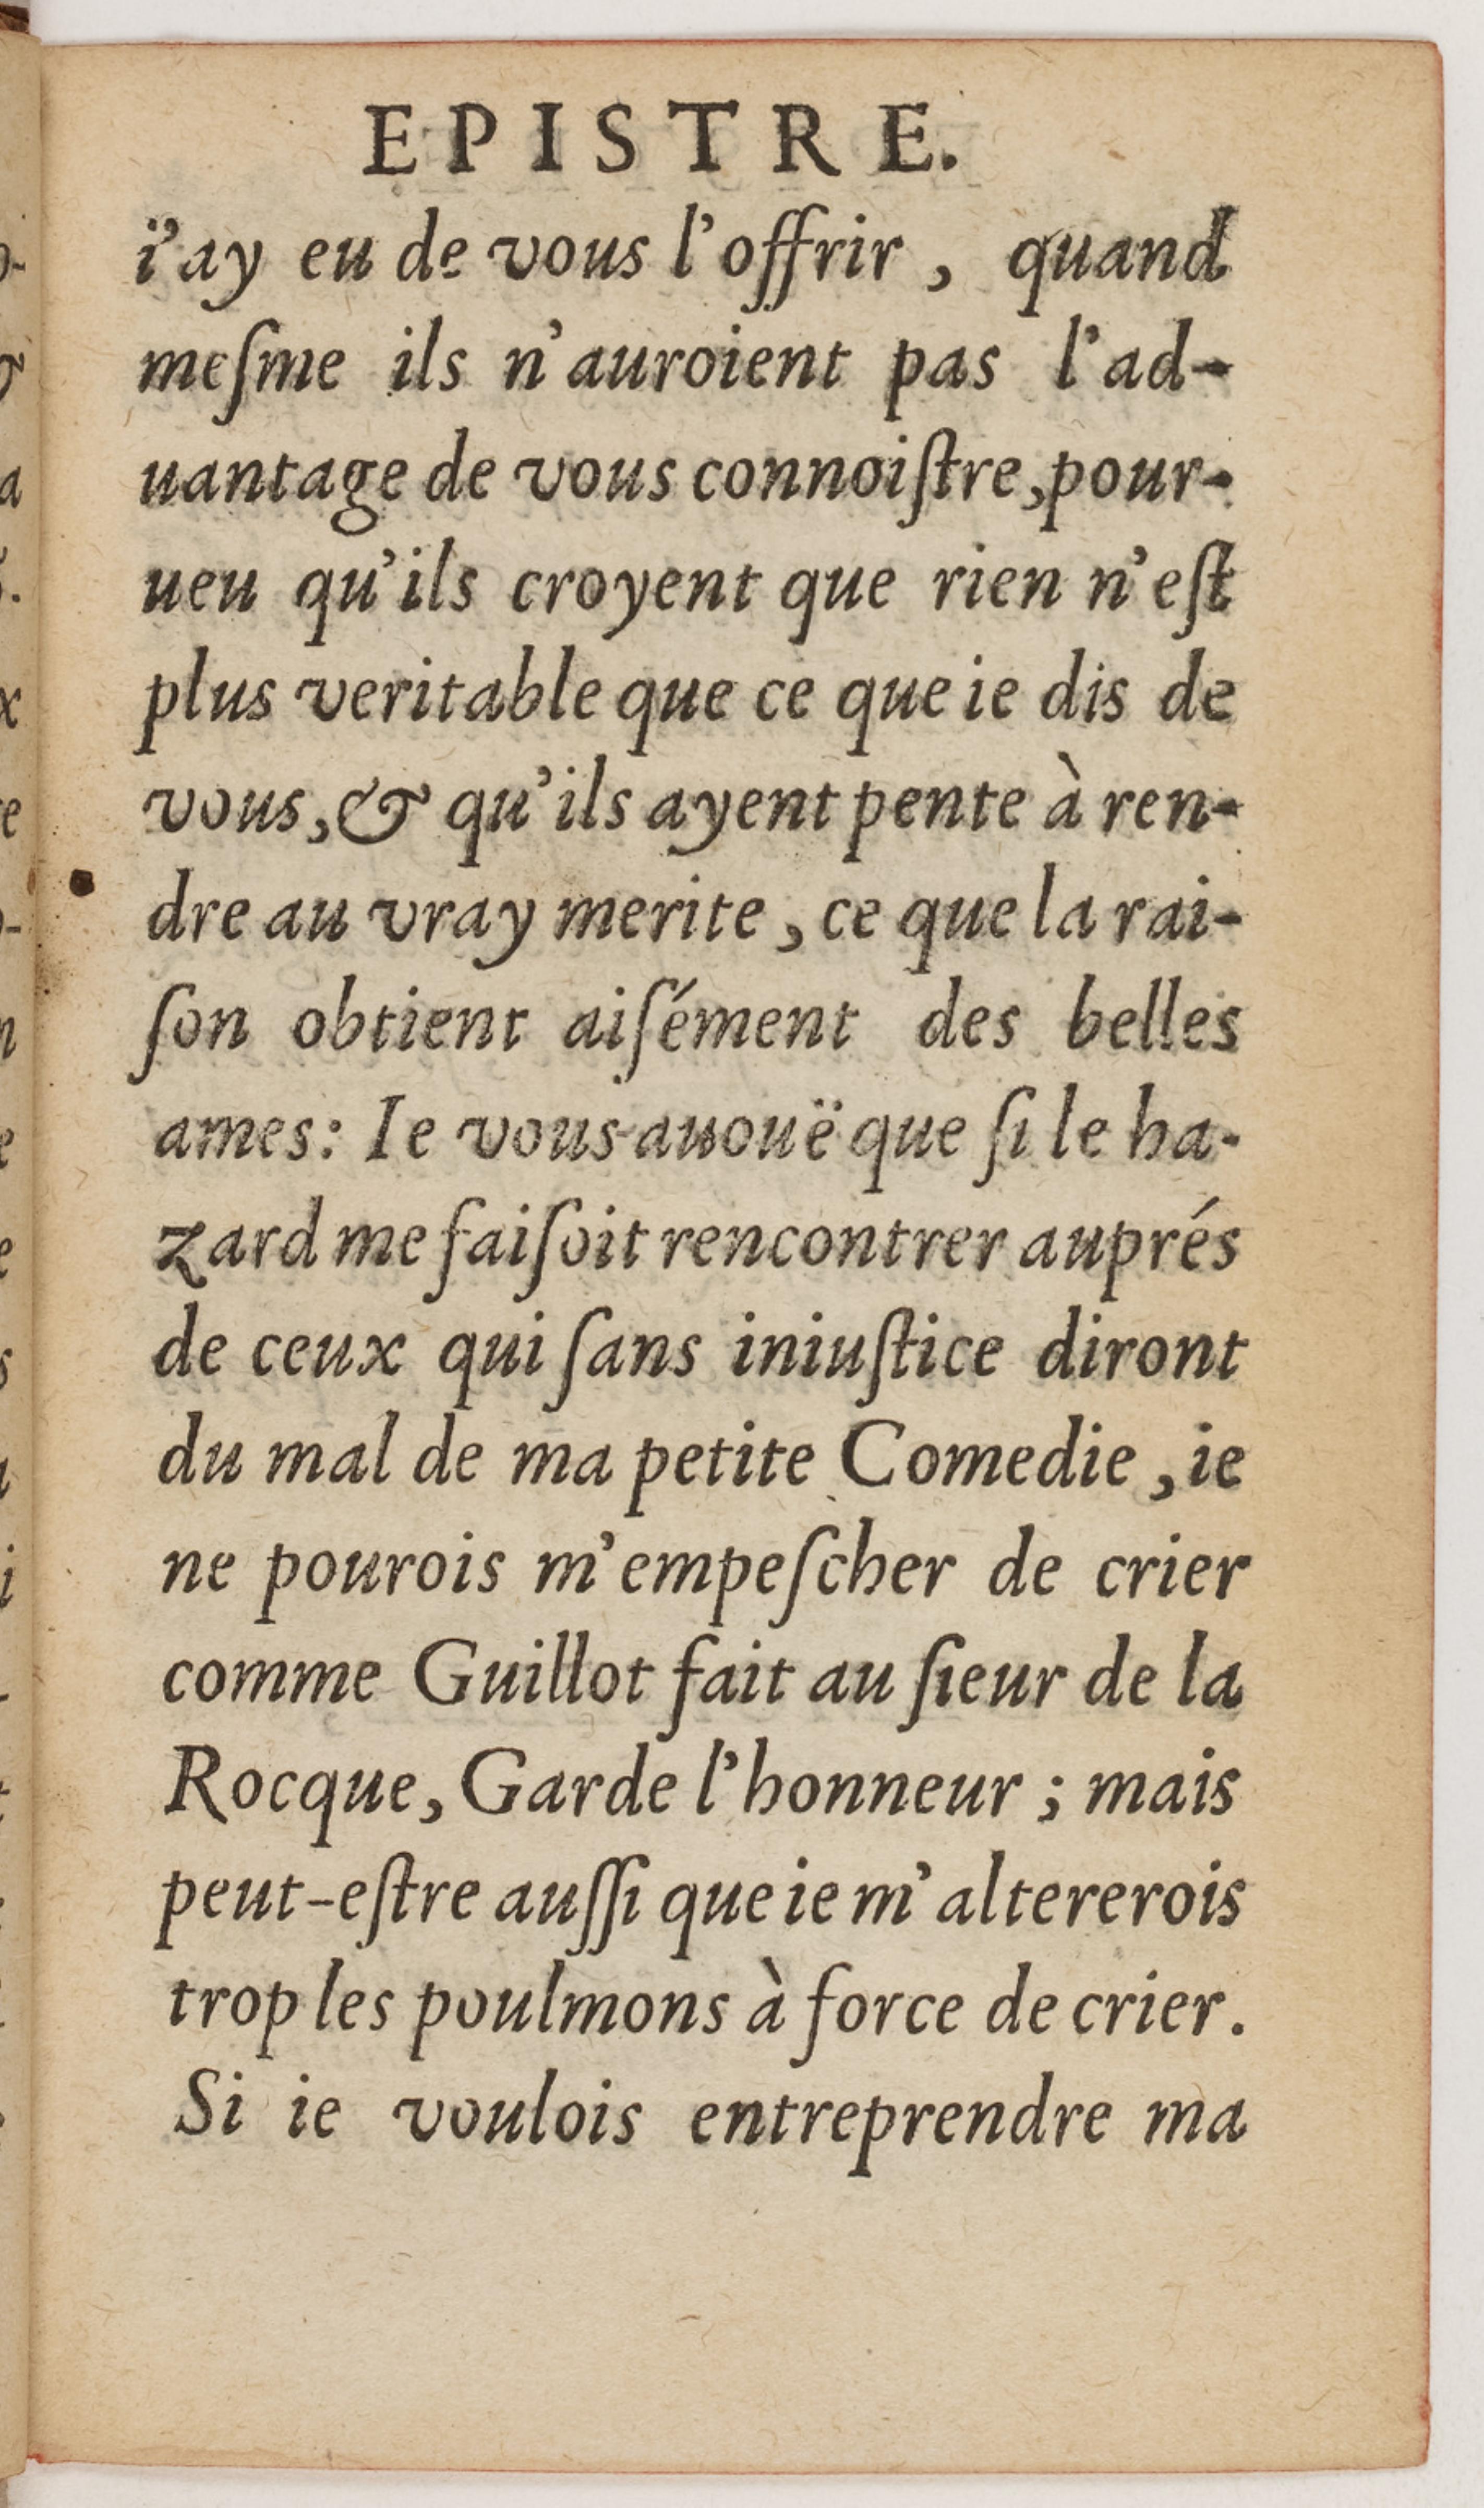 EPISTRE.
i'ay eu de vous l'offrir, quand
meſme ils n'auroient pas l'ad-
uantage de vous connoiſtre, pour-
ueu qu'ils croyent que rien n'eſt
plus veritable que ce que ie dis de
vous, & qu'ils ayent pente à ren-
dre au vray merite, ce que la rai-
ſon obtient aiſément des belles
ames: Ie vous auouë que ſi le ha-
zard me faiſoit rencontrer auprés
de ceux qui ſans iniuſtice diront
du mal de ma petite Comedie, ie
ne pourois m'empeſcher de crier
comme Guillot fait au ſieur de la
Rocque, Garde l'honneur; mais
peut-eſtre auſſi que ie m'altererois
trop les poulmons à force de crier.
Si ie voulois entreprendre ma